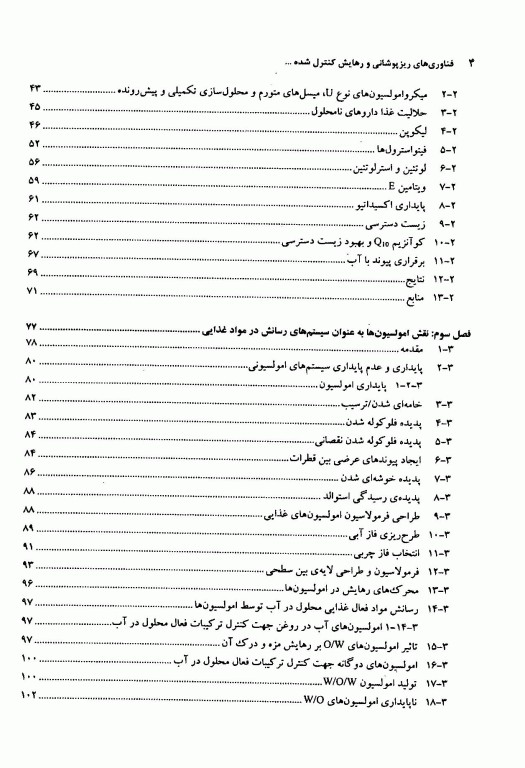 ۴ فناوری‌های ریزپوشانی و رهایش کنترل شده ...
۲-۲ میکروامولسیون‌های نوع U، میسل‌های متورم و محلول‌سازی تکمیلی و پیش‌رونده ........ ۴۳
۳-۲ حلالیت غذا داروهای نامحلول ........ ۴۵
۴-۲ لیکوپن ........ ۴۶
۵-۲ فیتواسترول‌ها ........ ۵۲
۶-۲ لوتئین و استرلوتئین ........ ۵۶
۷-۲ ویتامین E ........ ۵۹
۸-۲ پایداری اکسیداتیو ........ ۶۱
۹-۲ زیست دسترسی ........ ۶۲
۱۰-۲ کوآنزیم Q10 و بهبود زیست دسترسی ........ ۶۲
۱۱-۲ برقراری پیوند با آب ........ ۶۷
۱۲-۲ نتایج ........ ۶۹
۱۳-۲ منابع ........ ۷۱
فصل سوم: نقش امولسیون‌ها به عنوان سیستم‌های رسانش در مواد غذایی ........ ۷۷
۱-۳ مقدمه ........ ۷۸
۲-۳ پایداری و عدم پایداری سیستم‌های امولسیونی ........ ۸۰
۱-۲-۳ پایداری امولسیون ........ ۸۰
۳-۳ خامه‌ای شدن/ترسیب ........ ۸۲
۴-۳ پدیده فلوکوله شدن ........ ۸۳
۵-۳ پدیده فلوکوله شدن نقصانی ........ ۸۴
۶-۳ ایجاد پیوندهای عرضی بین قطرات ........ ۸۴
۷-۳ پدیده خوشه‌ای شدن ........ ۸۶
۸-۳ پدیده‌ی رسیدگی استوالد ........ ۸۸
۹-۳ طراحی فرمولاسیون امولسیون‌های غذایی ........ ۸۸
۱۰-۳ طرح‌ریزی فاز آبی ........ ۸۹
۱۱-۳ انتخاب فاز چربی ........ ۹۱
۱۲-۳ فرمولاسیون و طراحی لایه‌ی بین سطحی ........ ۹۳
۱۳-۳ محرک‌های رهایش در امولسیون‌ها ........ ۹۶
۱۴-۳ رسانش مواد فعال غذایی محلول در آب توسط امولسیون‌ها ........ ۹۷
۱-۱۴-۳ امولسیون‌های آب در روغن جهت کنترل ترکیبات فعال محلول در آب ........ ۹۷
۱۵-۳ تاثیر امولسیون‌های O/W بر رهایش مزه و درک آن ........ ۹۷
۱۶-۳ امولسیون‌های دوگانه جهت کنترل ترکیبات فعال محلول در آب ........ ۱۰۰
۱۷-۳ تولید امولسیون W/O/W ........ ۱۰۰
۱۸-۳ ناپایداری امولسیون‌های W/O ........ ۱۰۲